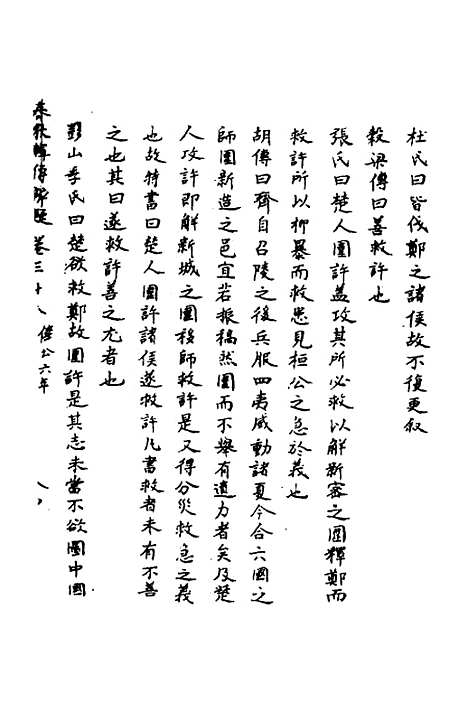 杜氏曰皆伐鄭之諸侯故不復更叙
穀梁傳曰善救許也
張氏曰楚人圍許盖攻其所必救以解新密之圍釋鄭而
救許所以抑暴而救患見桓公之急於義也
胡傳曰齊自召陵之後兵服四夷威動諸夏今合六國之
師圍新造之邑宜若振稿然圍而不舉有遺力者矣及楚
人攻許即解新城之圍移師救許是又得分災救急之義
也故特書曰楚人圍許諸侯遂救許凡書救者未有不善
之也其曰遂救許善之尤者也
彭山季氏曰楚欲救鄭故圍許是其志未嘗不欲圖中國
春秋輯傳辨疑 卷三十八 僖公六年 八